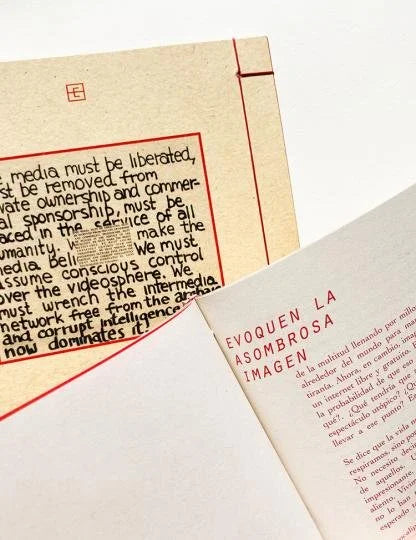 E
media must be liberated,
st be removed from
vate ownership and commer-
al sponsorship, must be
aced in the service of all
umanity. make the
media beli We must
assume conscious control
over the videosphere. We
must wrench the intermedia
network free from the
and corrupt intelligence
now dominates it!
EVOQUEN LA
ASOMBROSA
IMAGEN
de la multitud llenando por millo
alrededor del mundo para
tiranía. Ahora, en cambio, imag
un internet libre y
la probabilidad de que
qué?. ¿Qué tendría que
espectáculo utópico? ¿Qu
llevar a ese punto? En
Se dice que la vida n
respiramos, sino po
No necesito deci
de aquellos. U
impresionante,
aliento. Vivim
no lo han
esperado t